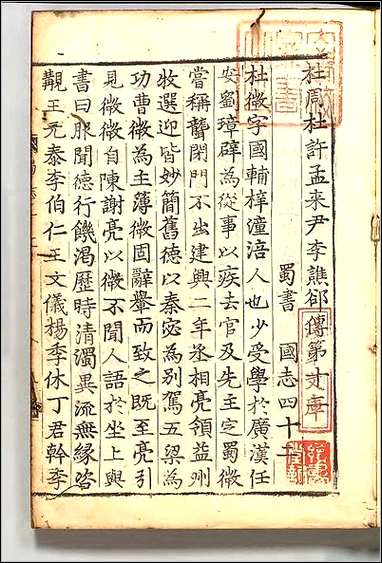 杜周杜許孟來尹李譙郤傳第十二
蜀書 國志四十二
杜微字國輔梓潼涪人也少受學於廣漢任
安劉璋辟為從事以疾去官及先主定蜀微
嘗稱聾閉門不出建興二年丞相亮領益州
牧選迎皆妙簡舊德以秦宓為別駕五梁為
功曹微為主簿微固辭轝而致之既至亮引
見微微自陳謝亮以微不聞人語於坐上與
書曰服聞德行饑渴歷時清濁異流無緣咨
覯王元泰李伯仁王文儀楊季休丁君幹李